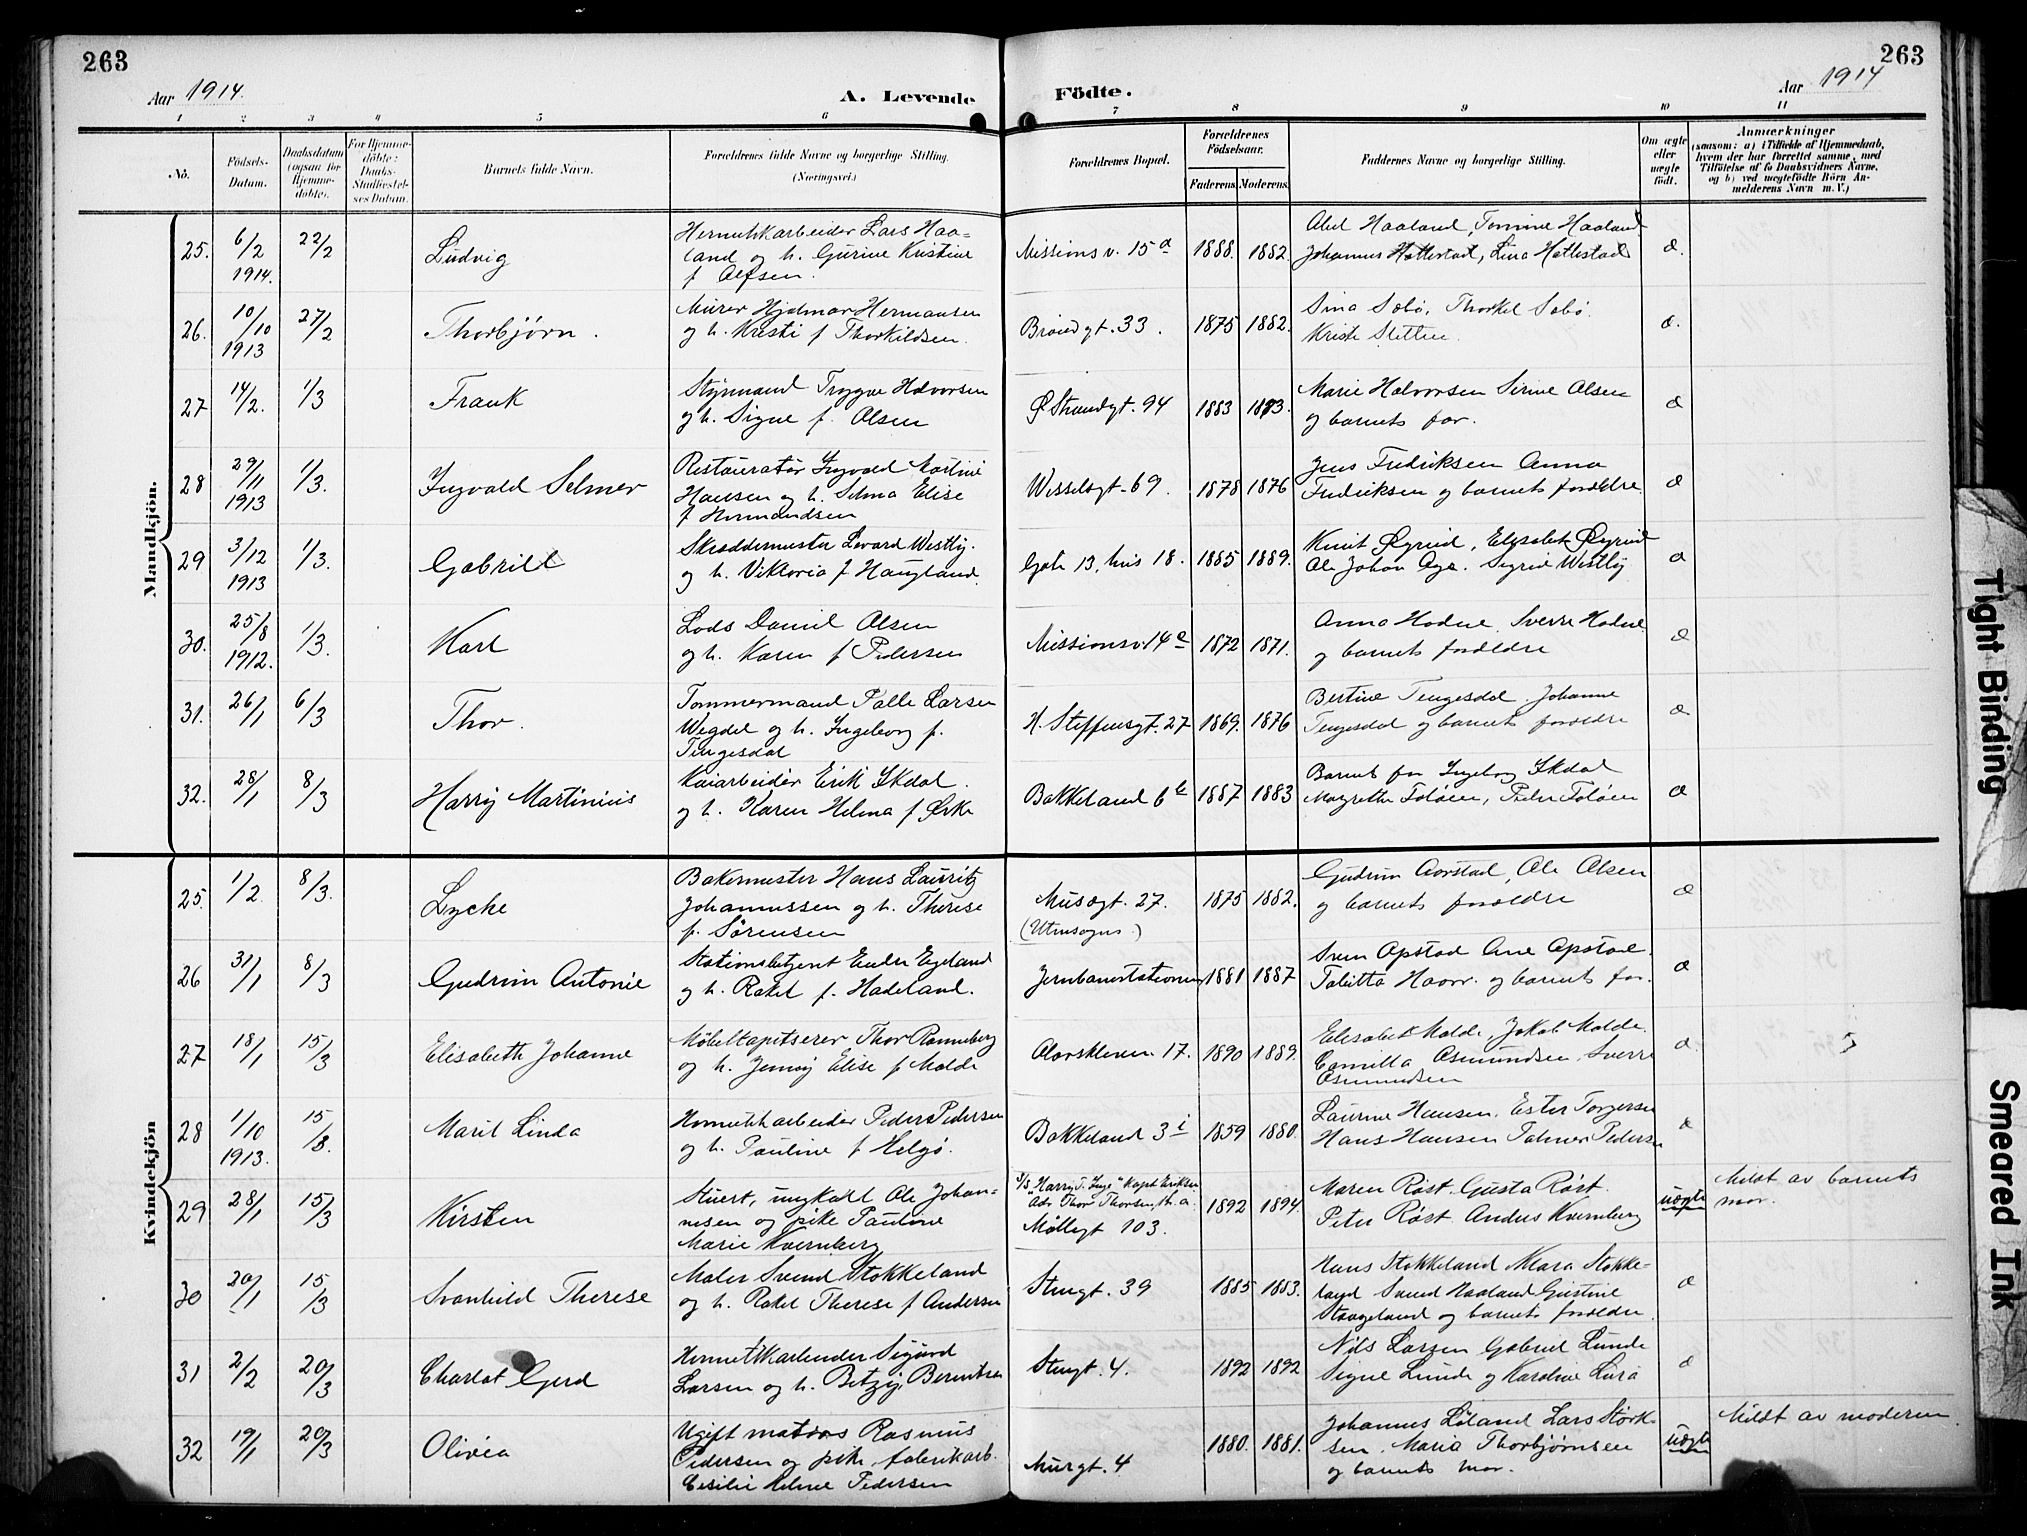 263
263
Aar 1914.
A. Levende Födte.
Aar 1914
1 2 3 4 5 6 7 8 9 10 11
No.
Födsels-Datum.
Daabsdatum (ogsaa for Hjemme-döbte).
For Hjemme-döbte: Daabs-Stadfæstel-ses Datum.
Barnets fulde Navn.
Forældrenes fulde Navne og borgerlige Stilling. (Næringsvei.)
Forældrenes Bopæl.
Forældrenes Födselsaar.
Faderens. Moderens.
Faddernes Navne og borgerlige Stilling.
Om ægte eller uægte födt.
Anmærkninger
(saasom: a) i Tilfælde af Hjemmedaab, hvem der har forrettet samme, med Tilföielse af to Daabsvidners Navne, og b) ved uægtefödte Börn An-melderens Navn m. V.)
Mandkjön.
25. 6/2 1914. 22/2 Ludvig
Hermetikkarbeider Lars Haa=
land og h. Gurine Kristine
f Olfsen.
Missions v. 15a 1888. 1882.
Abel Haaland, Tomine Haaland
Johannes Hattestad, Lina Hattestad
æ.
26. 10/10 1913 27/2 Thorbjørn.
Murer Hjalmar Hermansen
og h. Kristi f Thorkildsen.
Brøndgt. 33. 1875 1882.
Sina Sæbø, Thorkel Sæbø.
Kriste Sletten.
æ.
27 14/2. 1/3 Frank
Styrmand Trygve Halvorsen
og h. Signe f. Olsen
Ø Strandgt. 94 1883 1883.
Marie Halvorsen Serine Olsen
og barnets far.
æ
28 29/11 1913 1/3. Ingvald Selmer
Restauratør Ingvald Martin
Hansen og h. Selma Elise
f Hermandsen
Wesselsgt. 69. 1878 1876
Jens Fredriksen Anna
Fredriksen og barnets forældre
æ
29 3/12 1913 1/3. Gabriel
Skræddermester Sevard Westby.
og h. Viktoria f Haugland.
Gate 13, hus 18. 1885 1889.
Knut Øgreid, Elisabet Øgreid
Ole Johan Sigrid Westby
æ
30. 25/8 1912. 1/3. Karl
Lods Daniel Olsen
og h. Karen f Pedersen
Missionsv 14e 1872 1871.
Anna Hodne, Sverre Hodne
og barnets forældre
æ
31. 26/1 6/3 Thor.
Tømmermand Palle Larsen
Wegdal og h. Ingeborg f.
Tengesdal
H. Steffensgt. 27 1869. 1876
Bertine Tengesdal. Johanne
Tengesdal og barnets forældre
æ
32. 28/1 8/3 Harry Martinius
Kaiarbeider Erik Ekdal.
og h. Karen Helma f Ørke
Bakkeland 6b 1887 1883
Barnets far Ingeborg Ekdal
Margrethe Toløen, Peder Toløen
æ
Kvindekjön
25. 1/2. 8/3. Lycke
Bakermester Hans Lauritz
Johannessen og h. Therese
f. Sørensen
Musøgt. 27. (Utensogns) 1875 1882.
Gudrun Aorstad, Ole Olsen
og barnets forældre
æ
26 31/1 8/3 Gudrun Antonie
Stationsbetjent Endre Egeland
og h. Rakel f. Hadeland.
Jernbanestationen 1881 1887
Sven Opstad Ane Opstad
Tabitta Haarr. og barnets far.
æ
27 18/1 15/3 Elisabeth Johanne
Møbeltapetserer Thor Ranneberg
og h. Jenny Elise f Molde
Olavskleven. 17. 1890 1889.
Elisabet Molde, Jakob Molde.
Camilla Osmundsen, Sverre
Osmundsen
æ
28 1/10 1913. 15/3. Marit Linda
Hermetikkarbeider Peder Pedersen
og h. Pauline f Helgø.
Bakkeland 3i 1859 1880.
Laurine Hansen, Ester Torgersen
Hans Hansen Palmer Pedersen
æ
29 28/1 15/3 Kirsten
Stuert, ungkarl Ole Johan-
nesen og pike Pauline
Marie Kvernberg
S/S "Harry T. Inge" Kapt. Eriksen
Adr. Thor Thorsen, th. a.
Møllegt 103. 1892 1894.
Maren Røst. Gusta Røst.
Peter Røst. Anders Kvernberg
uægte
Meldt av barnets
mor.
30 20/1 15/3 Svanhild Therese
Maler Svend Stokkeland
og h. Rakel Therese f Andersen
Stengt. 39 1885 1883.
Hans Stokkeland Klara Stokke-
land Svend Haaland Gustine
Staageland og barnets forældre
æ
31 2/2 20/3 Charlot Gerd
Hermetikkarbeider Sigurd
Larsen og h. Betzy. Berentsen
Stengt. 4. 1892 1892
Nils Larsen Gabriel Lunde
Signe Lunde og Karoline Lura
æ
32 19/1 20/3 Olivia
Ugift matros Rasmus
Pedersen og pike, fabrikarb.
Cecilie Helene Pedersen
Murgt. 4 1880. 1881.
Johannes Løland Lars Størk-
sen. Maria Thorbjørnsen
og barnets mor.
uægte
Meldt av moderen
Tight Binding
Smeared Ink